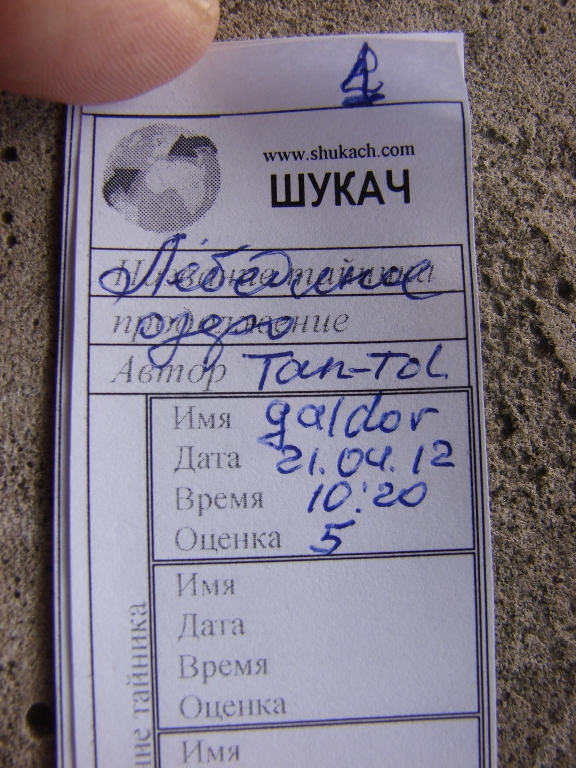 1
www.shukach.com
ШУКАЧ
Название тайника
Лебединое
продолжение
озеро
Автор Tan-Tol.
Имя galdor
Дата 21.04.12
Время 10:20
Оценка 5
Имя
Дата
Время
Оценка
Имя
ние тайника